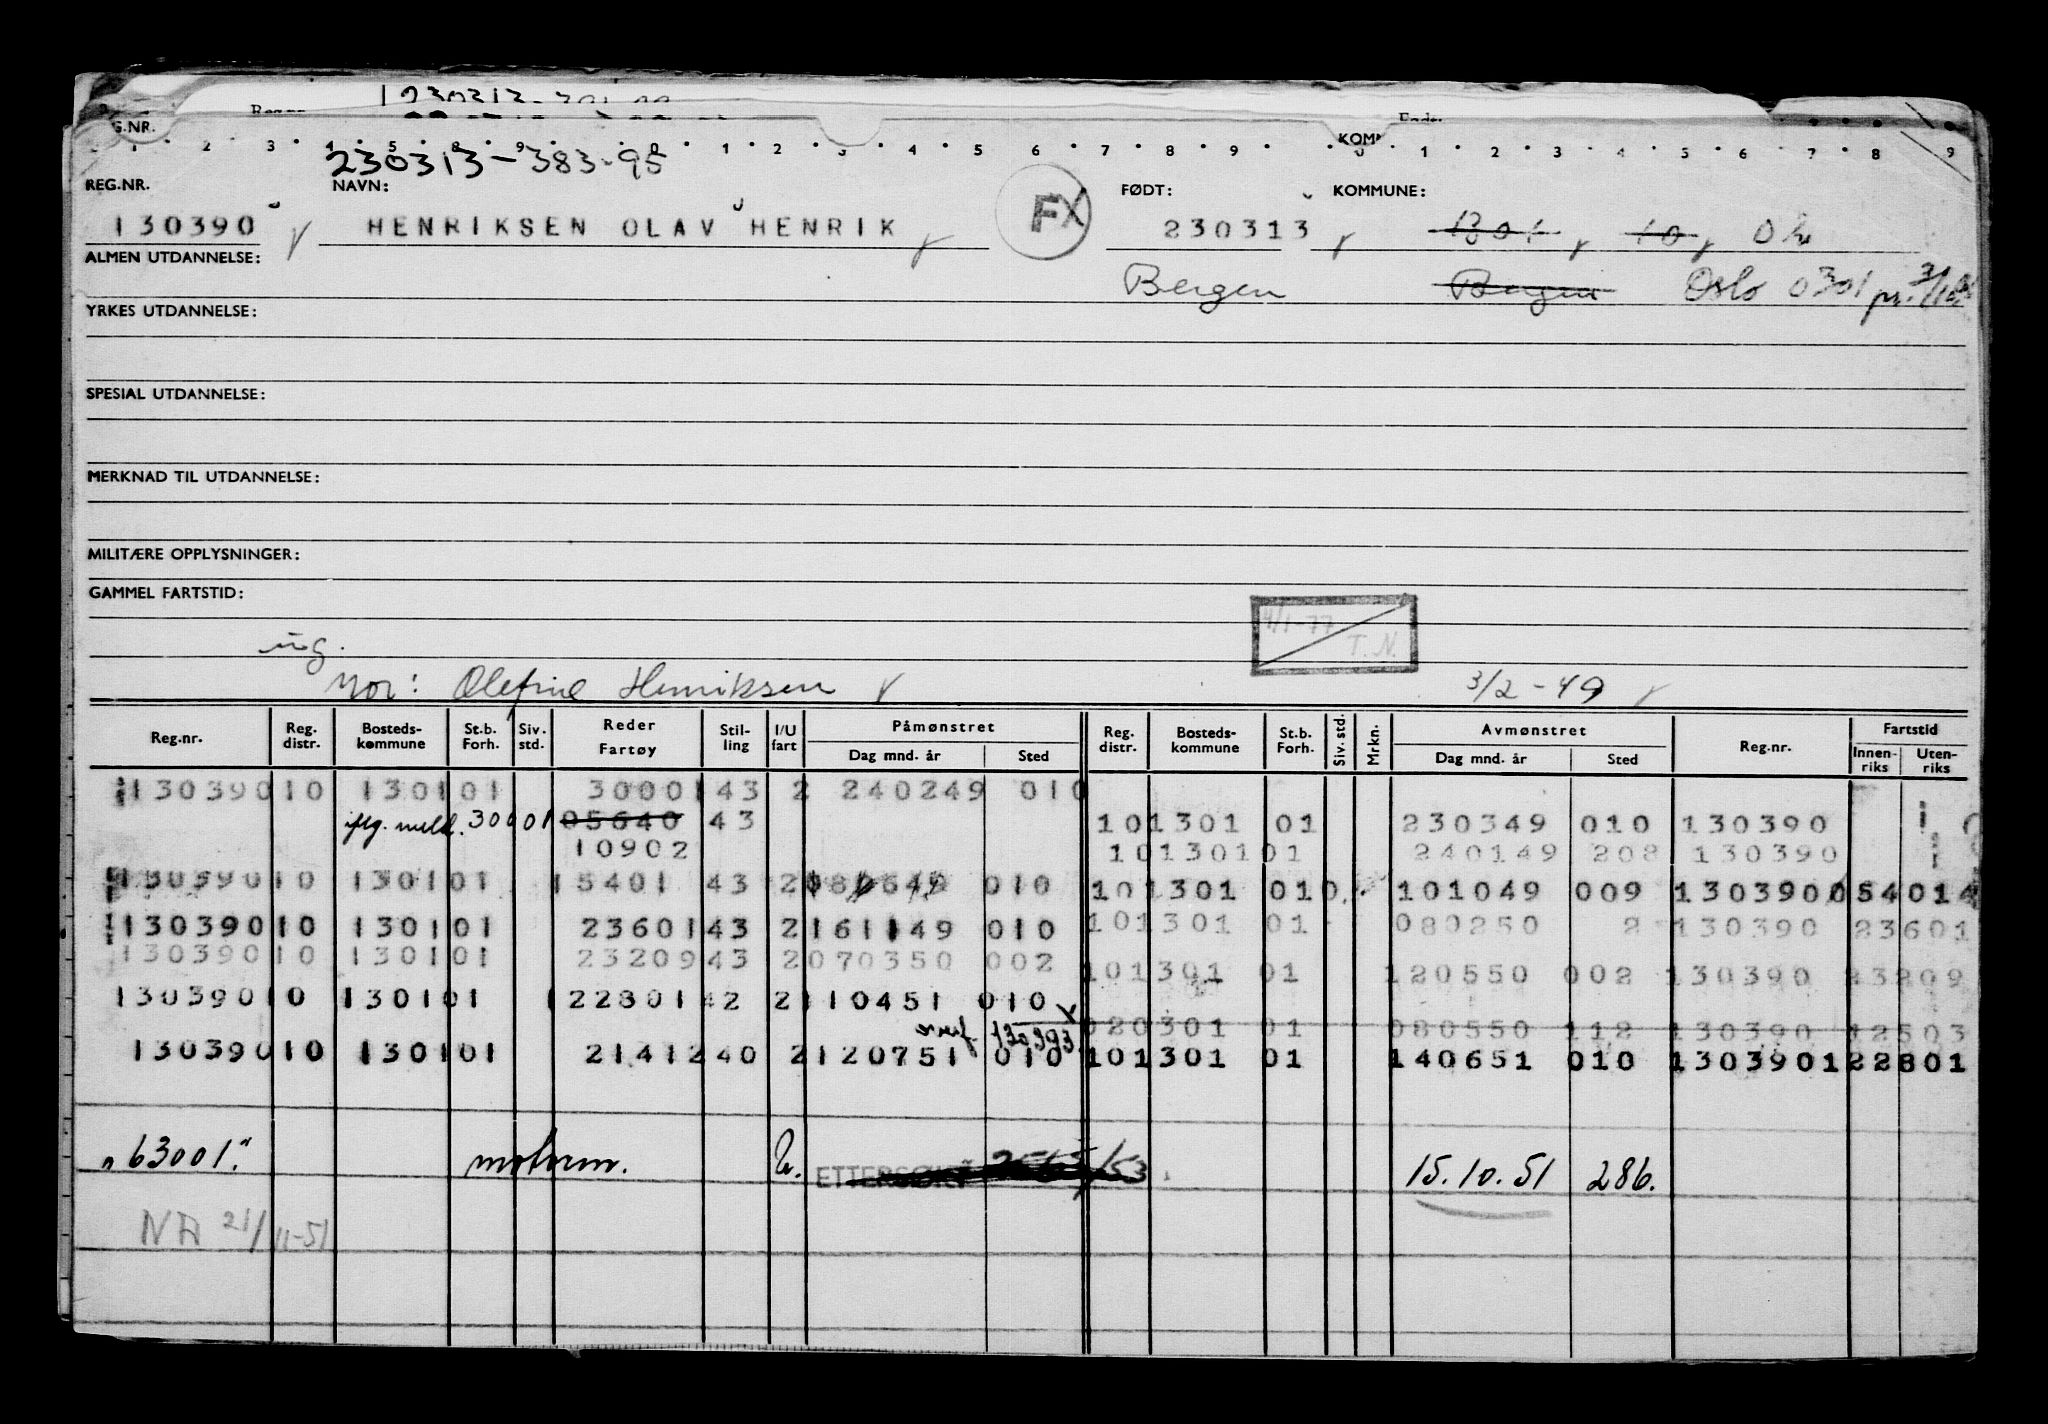 230313-
REG.NR. 1 2 3 4 5 8 9 0 1 2 3 4 5 6 7 8 9 0 1 2 3 4 5 6 7 8 9
230313-383-95
REG.NR. NAVN: FØDT: KOMMUNE:
130390 HENRIKSEN OLAV HENRIK FX 230313 1301, 10,
ALMEN UTDANNELSE: Bergen Bergen Oslo 0301
YRKES UTDANNELSE:
SPESIAL UTDANNELSE:
MERKNAD TIL UTDANNELSE:
MILITÆRE OPPLYSNINGER:
GAMMEL FARTSTID:
4/1-77 T.N.
ug.
Mor: Olefine Henriksen 3/2-49
Reg.nr. Reg. distr. Bosteds-kommune St.b. Forh. Siv. std. Reder Fartøy Stil-ling I/U fart Påmønstret Dag mnd. år Sted Reg. distr. Bosteds-kommune St.b. Forh. Siv. std. Mrkn. Avmønstret Dag mnd. år Sted Reg.nr. Fartstid Innen-riks Uten-riks
130390 10 1301 01 30001 43 2 240249 010
iflg. meld. 30001 05640 43 10 1301 01 230349 010 130390
10902 10 1301 01 240149 208 130390
130390 10 1301 01 15401 43 2 080649 010 10 1301 01 0 101049 009 130390 054014
130390 10 1301 01 23601 43 2 161149 010 10 1301 01 080250 2 130390 23601
130390 10 1301 01 23209 43 2 070350 002 10 1301 01 120550 002 130390 23209
130390 10 1301 01 122801 42 2 110451 010
130393 020301 01 080550 112 130390 12503
130390 10 1301 01 21412 40 2 120751 010 10 1301 01 140651 010 130390 122801
"63001." motorm. U. ETTERSØKT /53 15.10.51 286.
NA 21/11-51